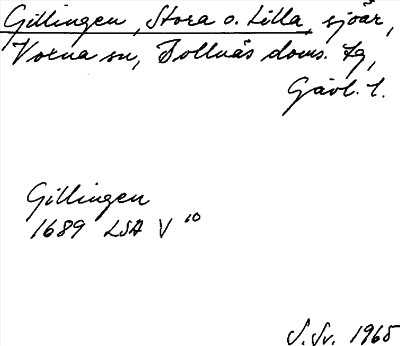 Gillingen, Stora o. Lilla, sjöar,
Voxna sn, Bollnäs doms. tg,
Gävl. l.
Gillingen
1689 LSA V 10
S. Sv. 1965